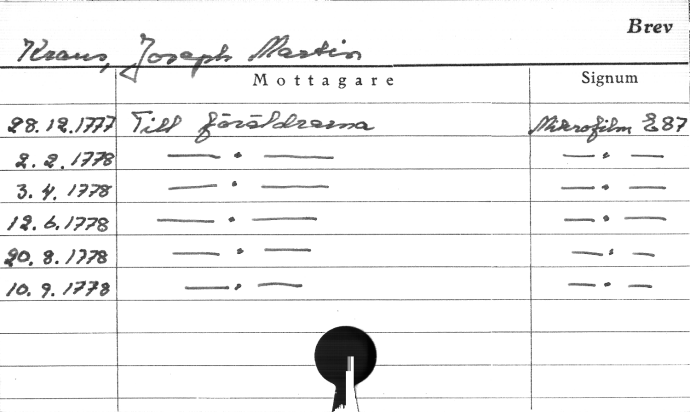 Brev
Kraus, Joseph Martin
Mottagare Signum
28.12.1777 Till föräldrarna Mikrofilm E87
2.2.1778 — • — — • —
3.4.1778 — • — — • —
12.6.1778 — • — — • —
20.8.1778 — • — — • —
10.9.1778 — • — — • —